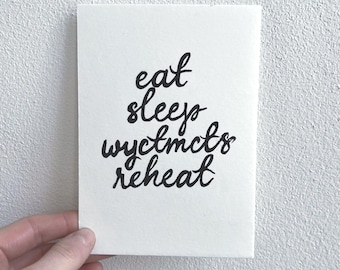 eat
sleep
wyctmcts
reheat